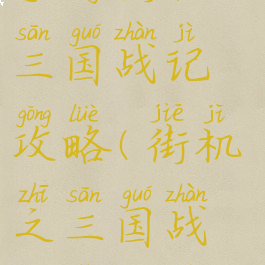 sān guó zhàn jì
三国战记
gōng lüè jiē jī
攻略(街机
zhī sān guó zhàn
之三国战